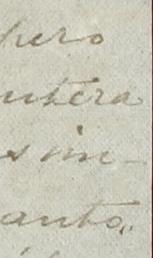 pero
utera
s im-
anto,,